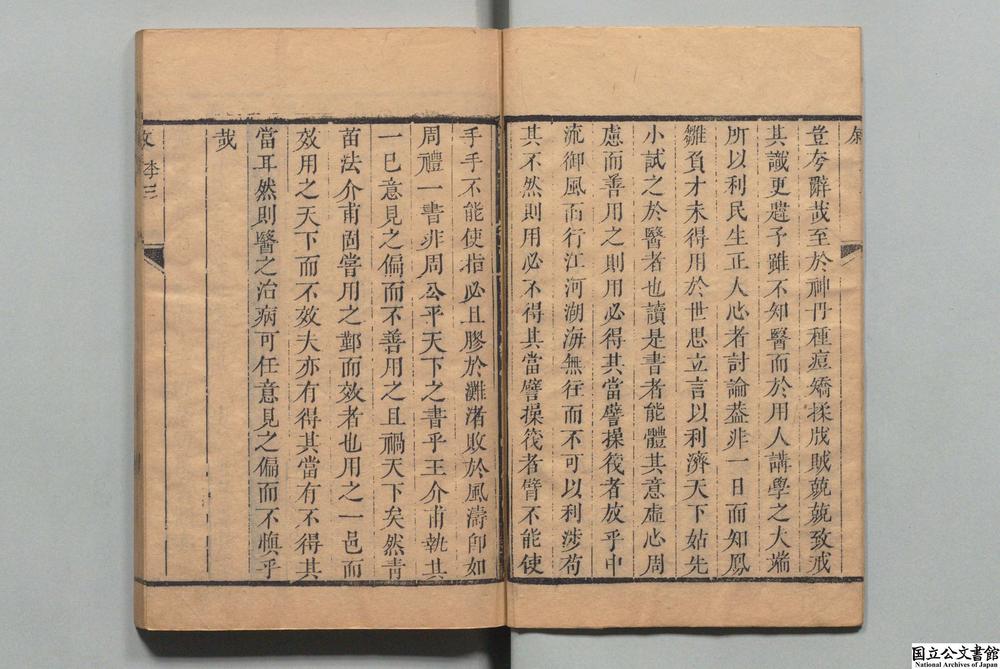 豈夸辭哉至於神丹種痘矯揉戕賊兢兢致戒
其識更邃予雖不知醫而於用人講學之大端
所以利民生正人心者討論葢非一日而知鳳
雛負才未得用於世思立言以利濟天下姑先
小試之於醫者也讀是書者能體其意虛心周
慮而善用之則用必得其當譬操筏者放乎中
流御風而行江河湖海無往而不可以利涉苟
其不然則用必不得其當譬操筏者臂不能使
手手不能使指必且膠於灘渚敗於風濤卽如
周禮一書非周公平天下之書乎王介甫執其
一已意見之偏而不善用之且禍天下矣然青
苗法介甫固嘗用之鄞而效者也用之一邑而
效用之天下而不效夫亦有得其當有不得其
當耳然則醫之治病可任意見之偏而不慎乎
哉
李三
国立公文書館
National Archives of Japan